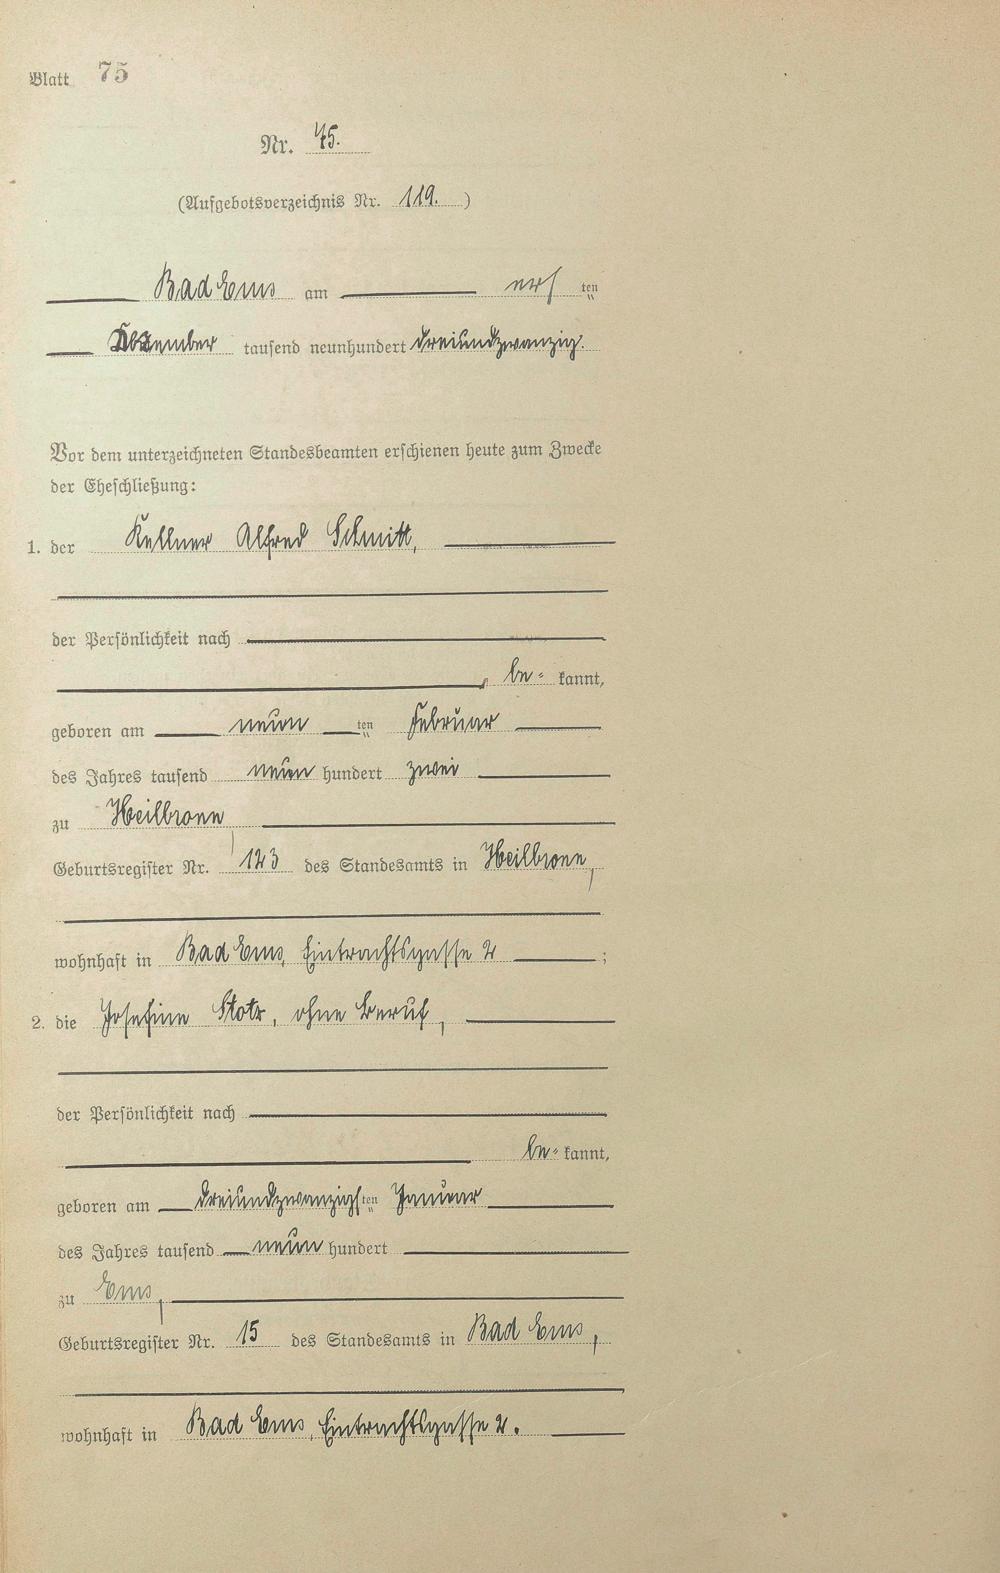 Blatt 75
Nr. 75.
(Aufgebotsverzeichnis Nr. 119.)
Bad Ems am erſ ten
tauſend neunhundert dreiundzwanzig.
Vor dem unterzeichneten Standesbeamten erſchienen heute zum Zwecke
der Eheſchließung:
1. der Kellner Alfred Schmitt,
der Perſönlichkeit nach
be- kannt,
geboren am neun ten Februar
des Jahres tauſend neun hundert zwei
zu Heilbronn
Geburtsregiſter Nr. 123 des Standesamts in Heilbronn,
wohnhaft in Bad Ems, Eintrachtsgasse 2 ;
2. die Josefine Stotz, ohne Beruf,
der Perſönlichkeit nach
be- kannt,
geboren am dreiundzwanzigſ ten Januar
des Jahres tauſend neun hundert
zu Ems,
Geburtsregiſter Nr. 15 des Standesamts in Bad Ems,
wohnhaft in Bad Ems, Eintrachtsgasse 2.